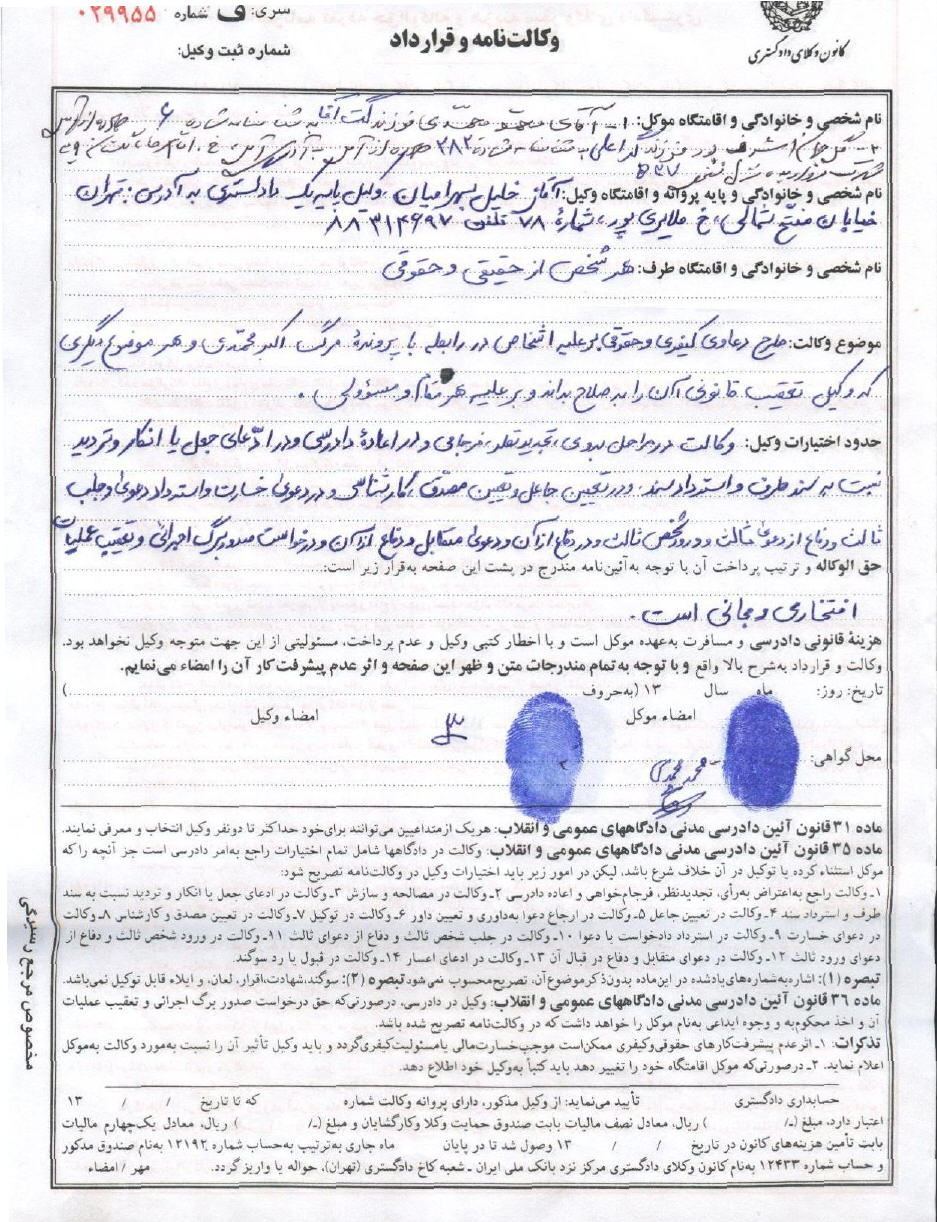 سری: ف شماره ۰۲۹۹۵۵
وکالت‌نامه و قرارداد
شماره ثبت وکیل:
کانون وکلای دادگستری
نام شخصی و خانوادگی و اقامتگاه موکل: ۱- آقای محمد محمدی فرزند گت آقا به شناسنامه شماره ۶ صادره از
۲- اشرف پور فرزند گدا علی به شناسنامه شماره ۳۸۲ صادره از آمل به آدرس آمل، خ. امام
۵۳۷
نام شخصی و خانوادگی و پایه پروانه و اقامتگاه وکیل: آقای خلیل بهرامیان وکیل پایه یک دادگستری به آدرس: تهران
خیابان مفتح شمالی، خ ملایری پور، شمارهٔ ۷۸ تلفن ۸۸۳۱۴۶۹۷
نام شخصی و خانوادگی و اقامتگاه طرف: هر شخص از حقیقی و حقوقی
موضوع وکالت: طرح دعاوی کیفری و حقوقی بر علیه اشخاص در رابطه با پروندهٔ مرگ اکبر محمدی و هر موضوع دیگری
که وکیل تعقیب قانونی آن را به صلاح بداند و بر علیه هر مقام و مسؤولی.
حدود اختیارات وکیل: وکالت در مراحل بدوی، تجدید نظر، فرجامی و در اعادهٔ دادرسی و در ادعای جعل یا انکار و تردید
نسبت به سند طرف و استرداد سند. و در تعیین جاعل و تعیین مصدق، کارشناسی و در دعوی خسارت و استرداد دعوی و جلب
ثالث و دفاع از دعوی ثالث و ورود شخص ثالث و در دفاع از آن و دعوی متقابل و دفاع از آن و درخواست صدور برگ اجرائی و تعقیب عملیات
حق الوکاله و ترتیب پرداخت آن با توجه به‌آئین‌نامه مندرج در پشت این صفحه به‌قرار زیر است:
افتخاری و مجانی است.
هزینهٔ قانونی دادرسی و مسافرت به‌عهده موکل است و با اخطار کتبی وکیل و عدم پرداخت، مسئولیتی از این جهت متوجه وکیل نخواهد بود.
وکالت و قرارداد به‌شرح بالا واقع و با توجه به‌تمام مندرجات متن و ظهر این صفحه و اثر عدم پیشرفت کار آن را امضاء می‌نمایم.
تاریخ: روز: ماه سال ۱۳ (به‌حروف )
امضاء موکل امضاء وکیل
محل گواهی:
محمد محمدی
ماده ۳۱ قانون آئین دادرسی مدنی دادگاههای عمومی و انقلاب: هریک از متداعیین می‌توانند برای‌خود حداکثر تا دونفر وکیل انتخاب و معرفی نمایند.
ماده ۳۵ قانون آئین دادرسی مدنی دادگاههای عمومی و انقلاب: وکالت در دادگاهها شامل تمام اختیارات راجع به‌امر دادرسی است جز آنچه را که
موکل استثناء کرده یا توکیل در آن خلاف شرع باشد، لیکن در امور زیر باید اختیارات وکیل در وکالت‌نامه تصریح شود:
۱ـ وکالت راجع به‌اعتراض به‌رأی، تجدیدنظر، فرجام‌خواهی و اعاده دادرسی ۲ـ وکالت در مصالحه و سازش ۳ـ وکالت در ادعای جعل یا انکار و تردید نسبت به سند
طرف و استرداد سند ۴ـ وکالت در تعیین جاعل ۵ـ وکالت در ارجاع دعوا به‌داوری و تعیین داور ۶ـ وکالت در توکیل ۷ـ وکالت در تعیین مصدق و کارشناس ۸ـ وکالت
در دعوای خسارت ۹ـ وکالت در استرداد دادخواست یا دعوا ۱۰ـ وکالت در جلب شخص ثالث و دفاع از دعوای ثالث ۱۱ـ وکالت در ورود شخص ثالث و دفاع از
دعوای ورود ثالث ۱۲ـ وکالت در دعوای متقابل و دفاع در قبال آن ۱۳ـ وکالت در ادعای اعسار ۱۴ـ وکالت در قبول یا رد سوگند.
تبصره (۱): اشاره به‌شماره‌های یادشده در این‌ماده بدون‌ذکر موضوع‌آن، تصریح‌محسوب نمی‌شود تبصره (۲): سوگند، شهادت، اقرار، لعان، و ایلاء قابل توکیل نمی‌باشد.
ماده ۳۶ قانون آئین دادرسی مدنی دادگاههای عمومی و انقلاب: وکیل در دادرسی، درصورتی‌که حق درخواست صدور برگ اجرائی و تعقیب عملیات
آن و اخذ محکوم‌به و وجوه ایداعی به‌نام موکل را خواهد داشت که در وکالت‌نامه تصریح شده باشد.
تذکرات: ۱ـ اثر عدم پیشرفت‌کارهای حقوقی‌وکیفری ممکن‌است موجب‌خسارت‌مالی یا‌مسئولیت‌کیفری‌گردد و باید وکیل تأثیر آن را نسبت به‌مورد وکالت به‌موکل
اعلام نماید. ۲ـ درصورتی‌که موکل اقامتگاه خود را تغییر دهد باید کتباً به‌وکیل خود اطلاع دهد.
حسابداری دادگستری تأیید می‌نماید: از وکیل مذکور، دارای پروانه وکالت شماره که تا تاریخ / / ۱۳
اعتبار دارد، مبلغ (ـ/ ) ریال، معادل نصف مالیات بابت صندوق حمایت وکلا وکارگشایان و مبلغ (ـ/ ) ریال، معادل یک‌چهارم مالیات
بابت تأمین هزینه‌های کانون در تاریخ / / ۱۳ وصول شد تا در پایان ماه جاری به‌ترتیب به‌حساب شماره ۱۲۱۹۲ به‌نام صندوق مذکور
و حساب شماره ۱۲۴۳۳ به‌نام کانون وکلای دادگستری مرکز نزد بانک ملی ایران ـ شعبه کاخ دادگستری (تهران)، حواله یا واریز گردد. مهر / امضاء
مخصوص مرجع رسیدگی